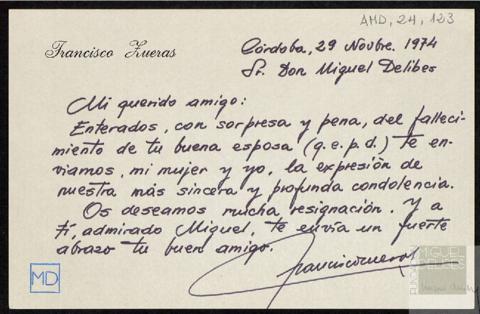 AMD, 24, 123
Francisco Zueras
Córdoba, 29 Novbre. 1974
Sr. Don Miguel Delibes
Mi querido amigo:
Enterados, con sorpresa y pena, del falleci-
miento de tu buena esposa (q.e.p.d.) te en-
viamos, mi mujer y yo, la expresión de
nuestra más sincera y profunda condolencia.
Os deseamos mucha resignación. Y a
tí, admirado Miguel, te envía un fuerte
abrazo tu buen amigo.
Francisco Zueras
MD
FUNDACIÓN
MIGUEL
DELIBES